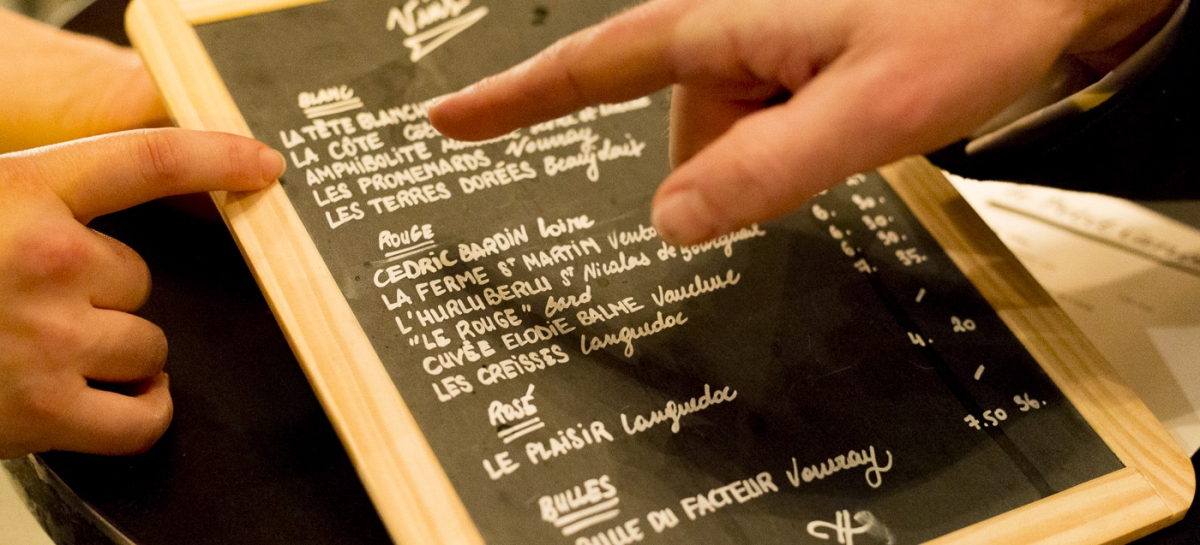 Vins
BLANC
LA TÊTE BLANCHE
LA CÔTE
AMPHIBOLITE
LES PROMENARDS Vouvray
LES TERRES DORÉES Beaujolais
ROUGE
CEDRIC BARDIN Loire
LA FERME ST MARTIN Vento
L'HURLUBERLU ST Nicolas de Bourgueil
"LE ROUGE" Gard
CUVÉE ELODIE BALME Vaucluse
LES CREISSES Languedoc
6. 30.
6. 30.
6. 30.
7. 35.
ROSÉ
LE PLAISIR Languedoc
4. 20
BULLES
BULLE DU FACTEUR Vouvray
7.50 36.